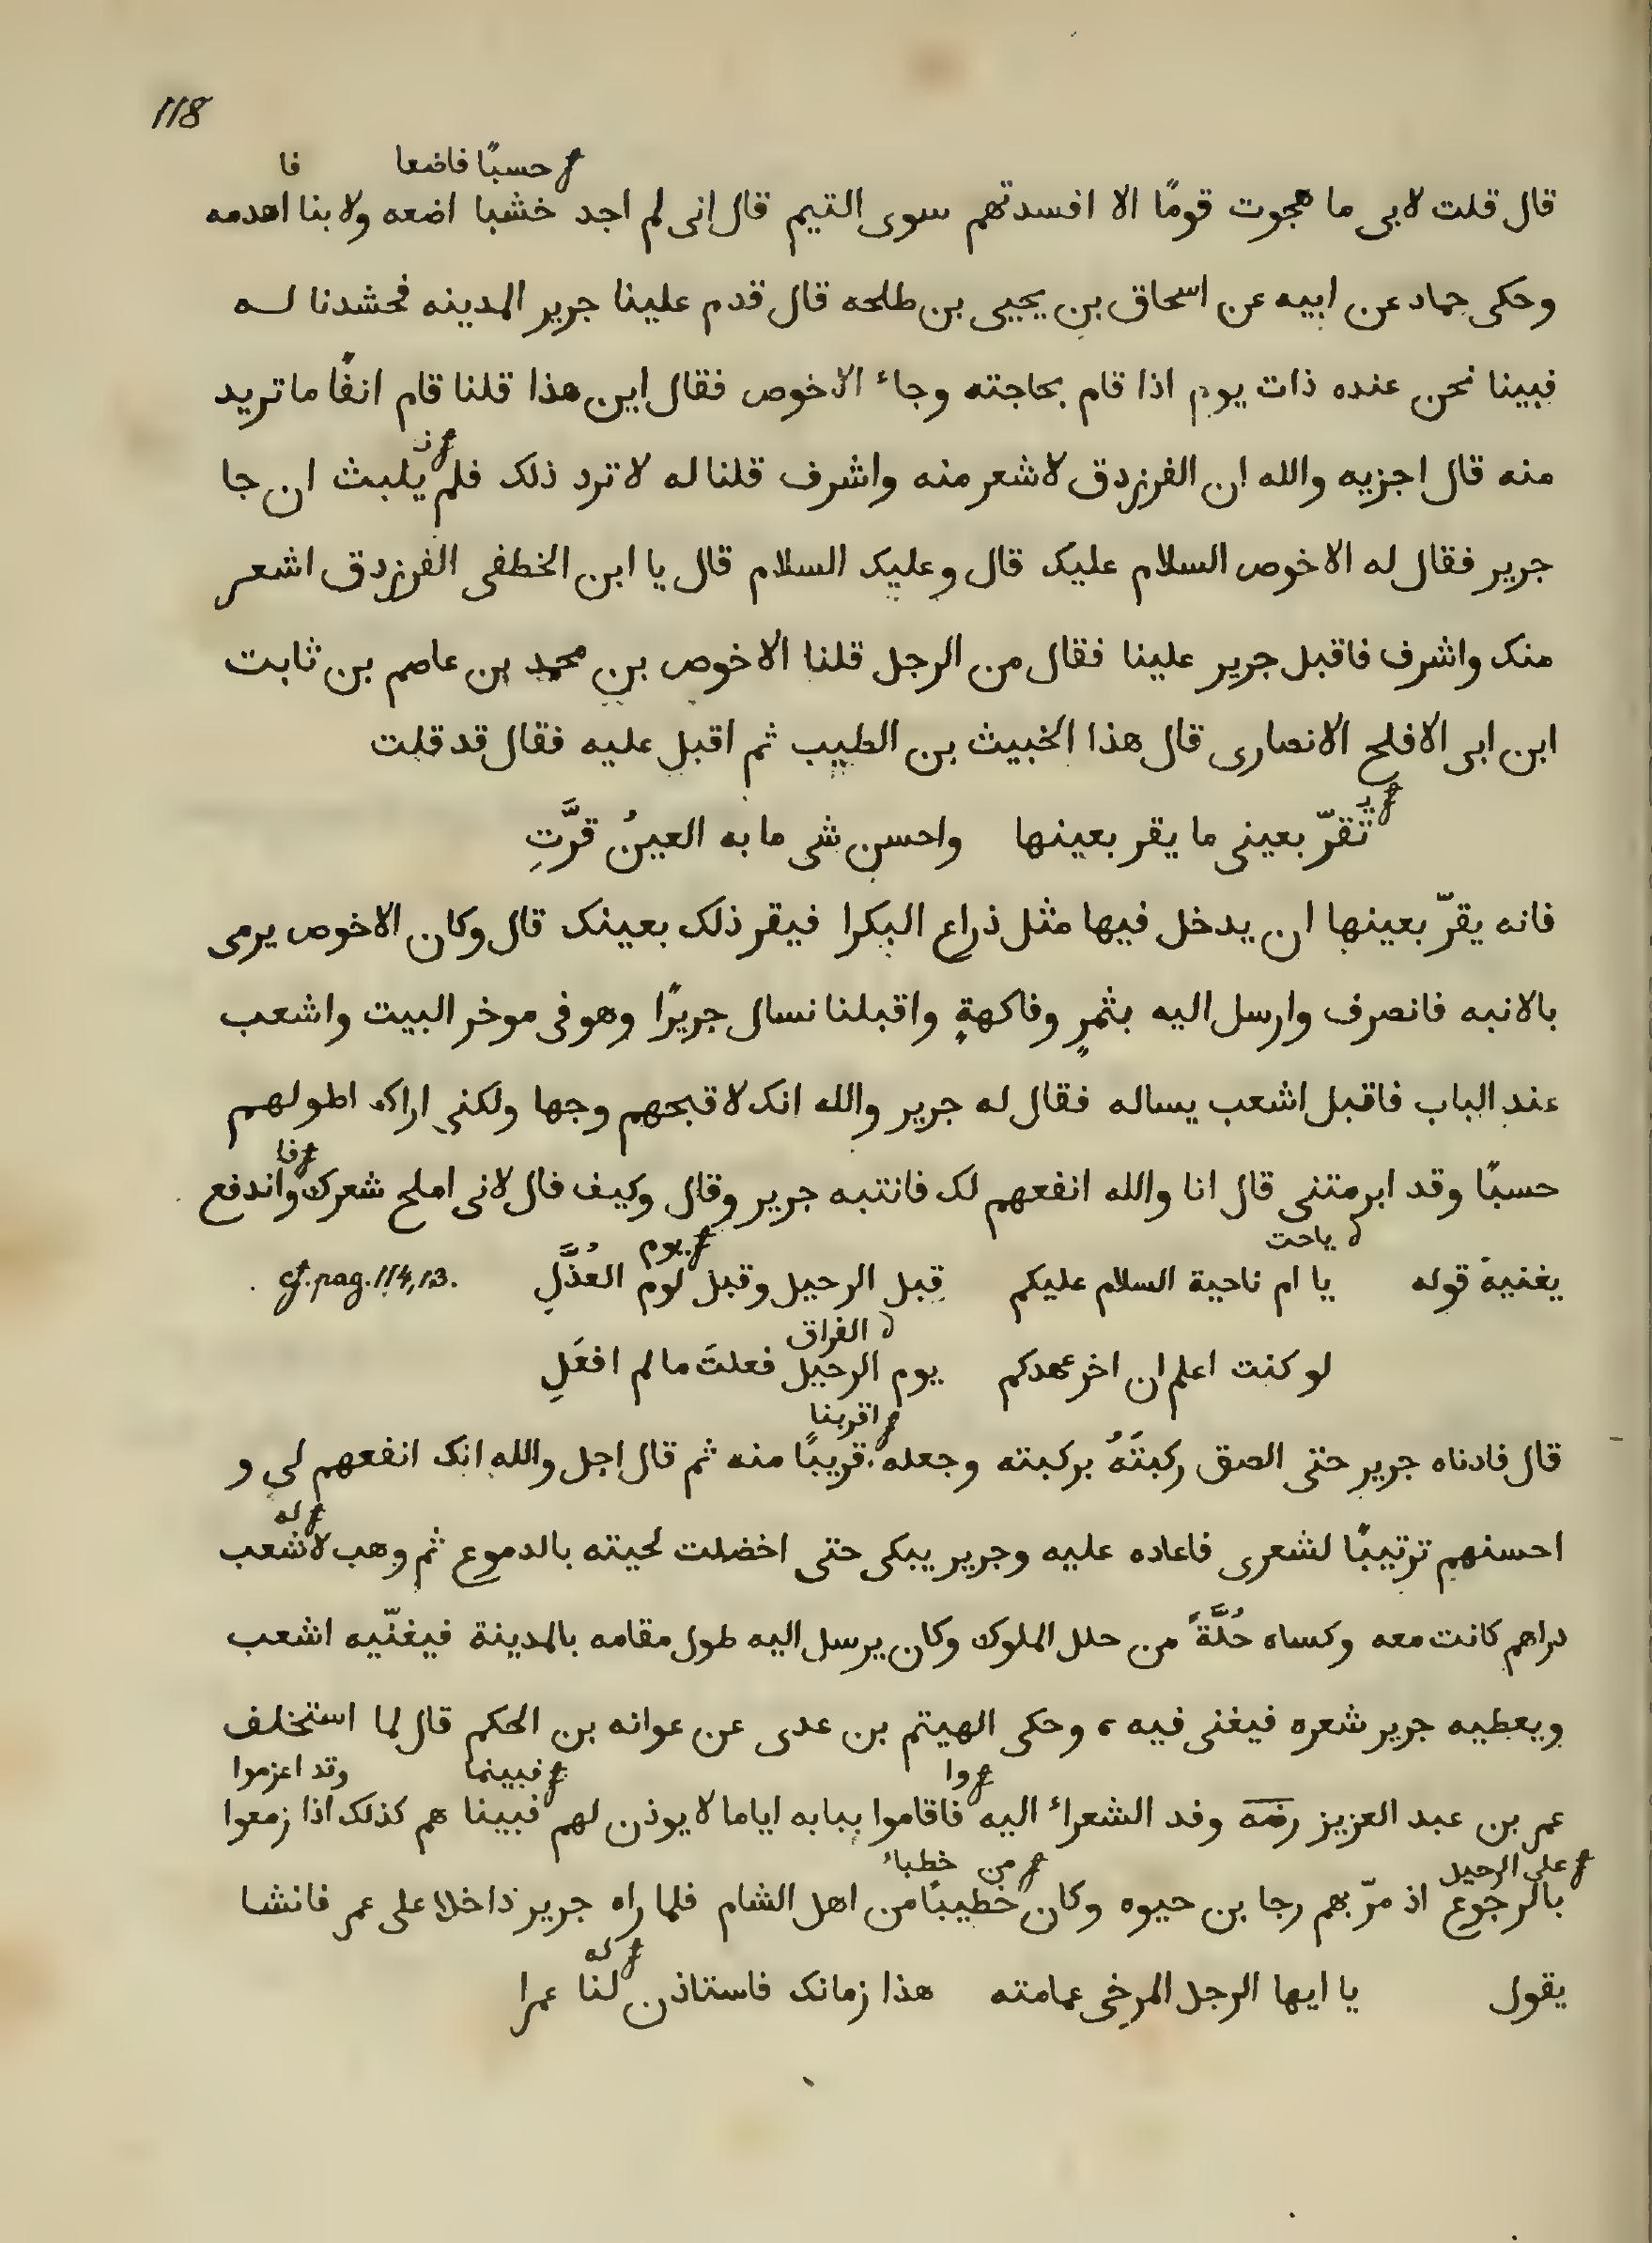 118
f حسبًا فاضعا فا
قال قلت لابى ما هجوت قومًا الا افسدتهم سوى التيم قال انى لم اجد خشبا اضعه ولا بنا اهدمه
وحكى حماد عن ابيه عن اسحاق بن يحيى بن طلحه قال قدم علينا جرير المدينه فحشدنا له
فبينا نحن عنده ذات يوم اذا قام بحاجته وجاء الاخوص فقال اين هذا قلنا قام انفًا ما تريد
f نـ
منه قال اجزيه والله ان الفرزدق لاشعر منه واشرف قلنا له لا ترد ذلك فلم يلبث ان جا
جرير فقال له الاخوص السلام عليك قال وعليك السلام قال يا ابن الخطفى الفرزدق اشعر
منك واشرف فاقبل جرير علينا فقال من الرجل قلنا الاخوص بن محمد بن عاصم بن ثابت
ابن ابى الافلح الانصارى قال هذا الخبيث بن الطيب ثم اقبل عليه فقال قد قلت
f يـ
تقرّ بعينى ما يقر بعينها واحسن شى ما به العينُ قرَّتِ
فانه يقرّ بعينها ان يدخل فيها مثل ذراع البكرا فيقر ذلك بعينك قال وكان الاخوص يرمى
بالانبه فانصرف وارسل اليه بثمرٍ وفاكهةٍ واقبلنا نسال جريرًا وهو فى موخر البيت واشعب
عند الباب فاقبل اشعب يساله فقال له جرير والله انك لاقبحهم وجها ولكنى اراك اطولهم
f فا
حسبًا وقد ابرمتنى قال انا والله انفعهم لك فانتبه جرير وقال وكيف قال لانى املح شعرك واندفع
ياحت f يوم
يغنيه قوله يا ام ناحية السلام عليكم قبل الرحيل وقبل لوم العُذَّلِ cf. pag. 114, 13.
الفراق
لو كنت اعلم ان اخر عهدكم يوم الرحيل فعلتَ ما لم افعَلِ
f اقربنا
قال فادناه جرير حتى الصق ركبتَهُ بركبته وجعله قريبًا منه ثم قال اجل والله انك انفعهم لى و
f له
احسنهم ترتيبًا لشعرى فاعاده عليه وجرير يبكى حتى اخضلت لحيته بالدموع ثم وهب لاشعب
دراهم كانت معه وكساه حُلَّةً من حلل الملوك وكان يرسل اليه طول مقامه بالمدينة فيغنّيه اشعب
ويعطيه جرير شعره فيغنى فيه ، وحكى الهيتم بن عدى عن عوانه بن الحكم قال لما استخلف
f وا f فبينما وقد اعزموا
عمر بن عبد العزيز رضه وفد الشعراء اليه فاقاموا ببابه اياما لا يوذن لهم فبينا هم كذلك اذا زمعوا
f على الرحيل f من خطباء
بالرجوع اذ مرّ بهم رجا بن حيوه وكان خطيبًا من اهل الشام فلما راه جرير داخلا على عمر فانشا
f له
يقول يا ايها الرجل المرخى عمامته هذا زمانك فاستاذن لنا عمرا